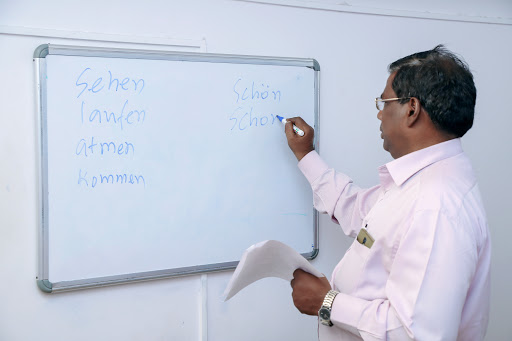 Sehen
laufen
atmen
kommen
Schön
Schon